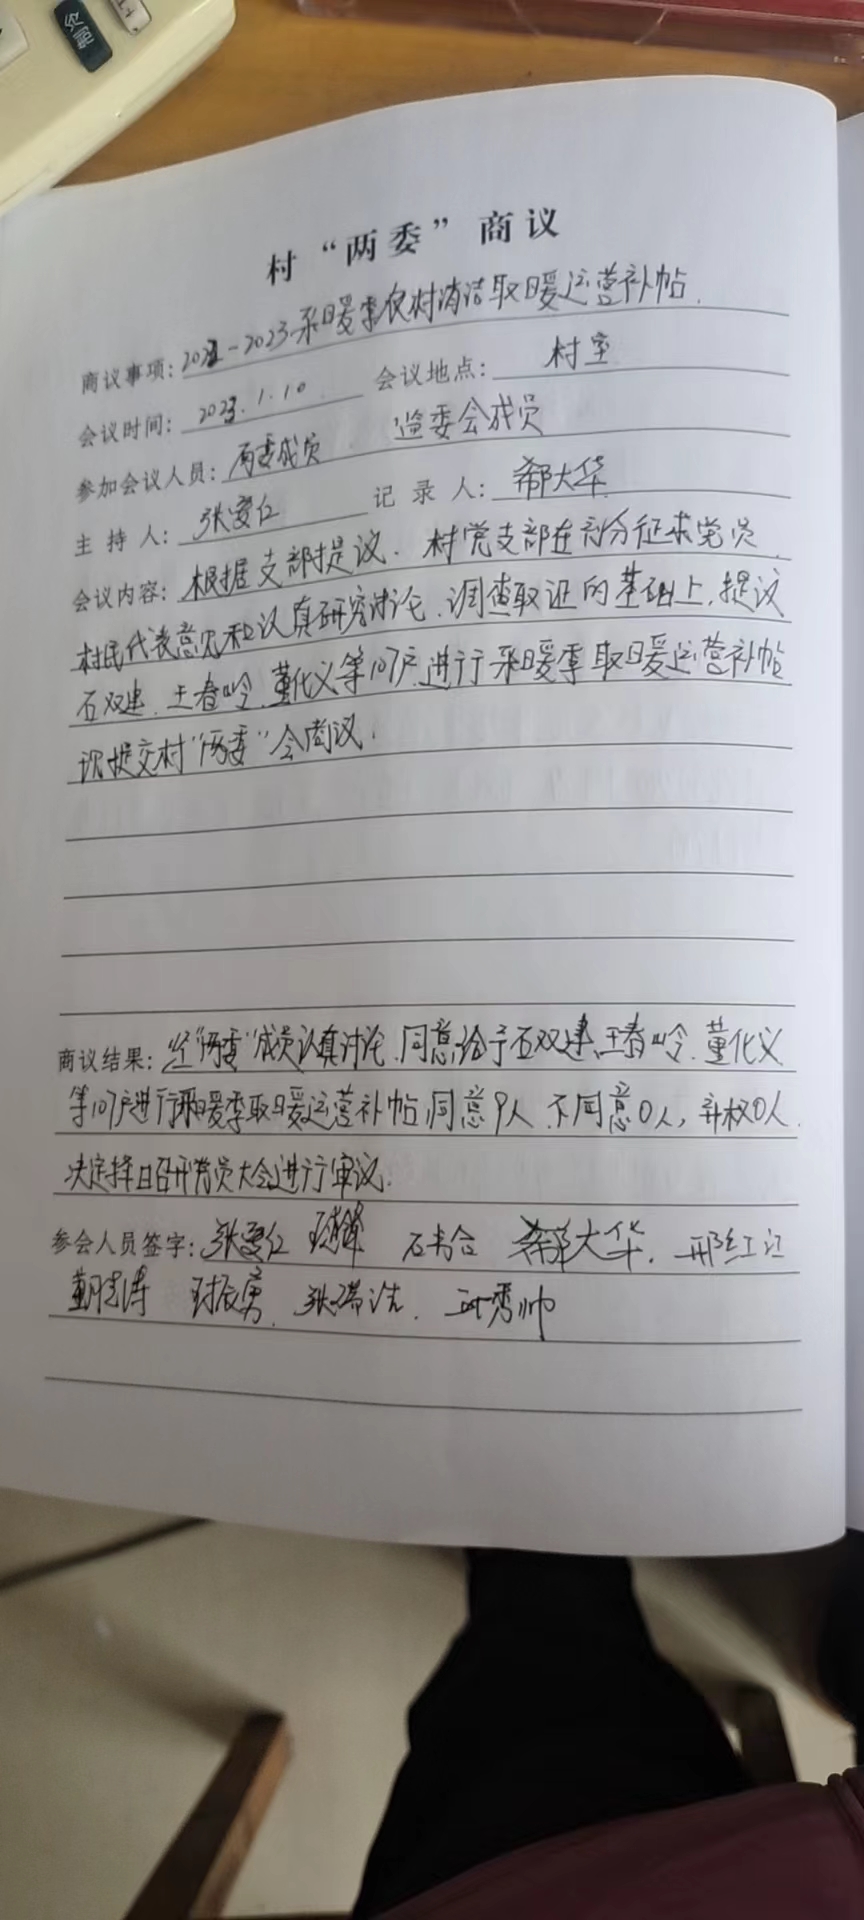 制冷
村“两委”商议
商议事项：2022-2023采暖季农村清洁取暖运营补帖.
会议时间：2023.1.10 会议地点：村室
参加会议人员：两委成员 监委会成员
主持人：张爱仁 记录人：郗大华
会议内容：根据支部提议、村党支部在充分征求党员、
村民代表意见和认真研究讨论、调查取证的基础上，提议
石双建、王春岭、董化义等107户进行采暖季取暖运营补帖
现提交村“两委”会商议.
商议结果：经“两委”成员认真讨论，同意给予石双建、王春岭、董化义
等107户进行采暖季取暖运营补帖，同意9人、不同意0人，弃权0人.
决定择日召开党员大会进行审议.
参会人员签字：张爱仁 石书合 郗大华. 邢红江
张瑞洁. 秀帅